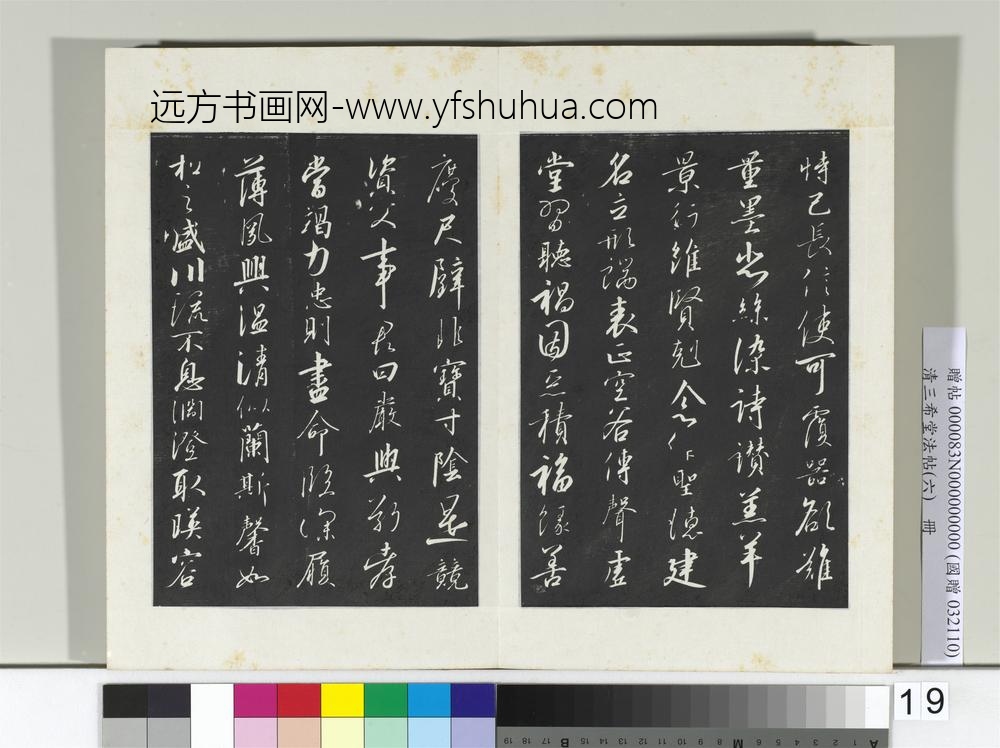 远方书画网-www.yfshuhua.com
恃己長信使可覆器欲難
量墨悲絲染詩讚羔羊
景行維賢剋念作聖德建
名立形端表正空谷傳聲虛
堂習聽禍因惡積福緣善
慶尺璧非寶寸陰是競
資父事君曰嚴與敬孝
當竭力忠則盡命臨深履
薄夙興溫清似蘭斯馨如
松之盛川流不息淵澄取暎容
贈帖 000083N000000000 (國贈 032110)
清三希堂法帖(六) 冊
19
A 1 2 3 4 5 6 M 8 9 10 11 12 13 14 15 B 17 18 19